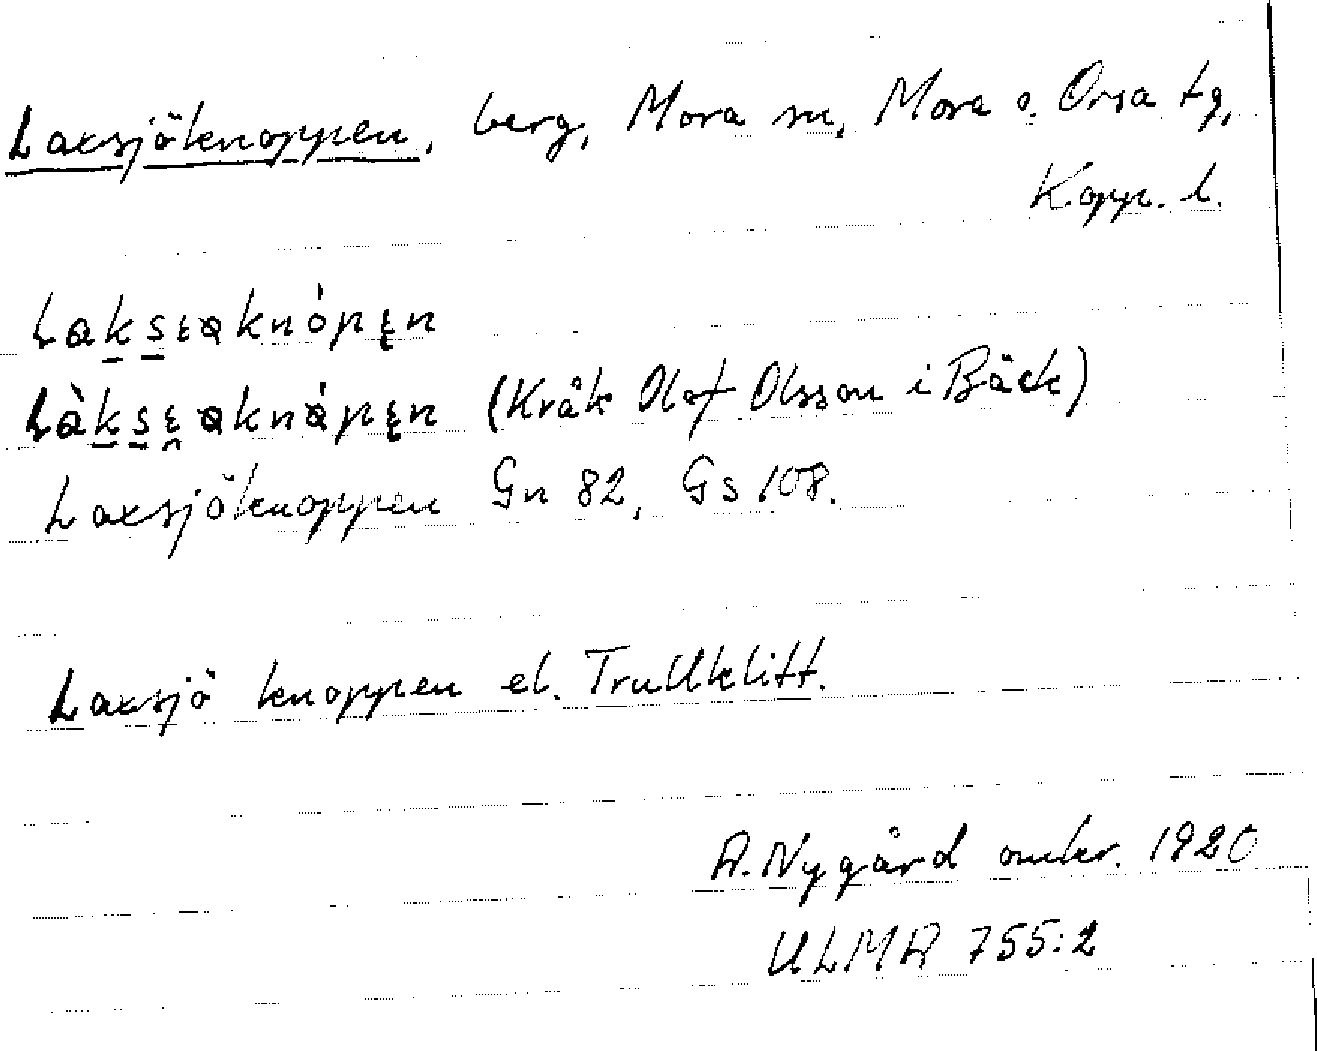 Laxsjöknoppen, berg, Mora sn, Mora o. Orsa tg,
Kopp. l.
(Kråk Olof Olsson i Bäck)
Laxsjöknoppen Gn 82, Gs 108.
Laxsjö knoppen el. Trullklitt.
A. Nygård omkr. 1920
ULMA 755:2